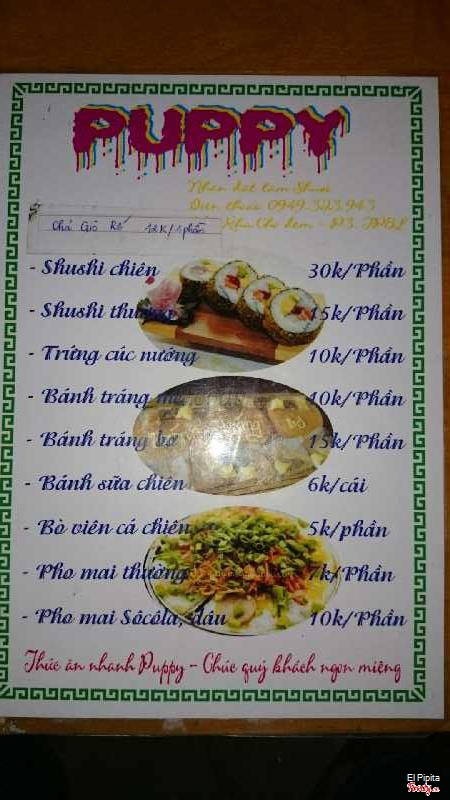 PUPPY
Nhận đặt làm Shusi
Điện thoại 0949.323.943
Khu Chợ đêm - P3. TPBL
Chả Giò Rế 12K/1phần
- Shushi chiên 30k/Phần
- Shushi thường 15k/Phần
- Trứng cúc nướng 10k/Phần
- Bánh tráng 10k/Phần
- Bánh tráng bơ 15k/Phần
- Bánh sữa chiên 6k/cái
- Bò viên cá chiên 5k/phần
- Pho mai thường 7k/Phần
- Pho mai Sôcôla, dâu 10k/Phần
Thức ăn nhanh Puppy - Chúc quý khách ngon miệng
El Pipita
Foody.vn